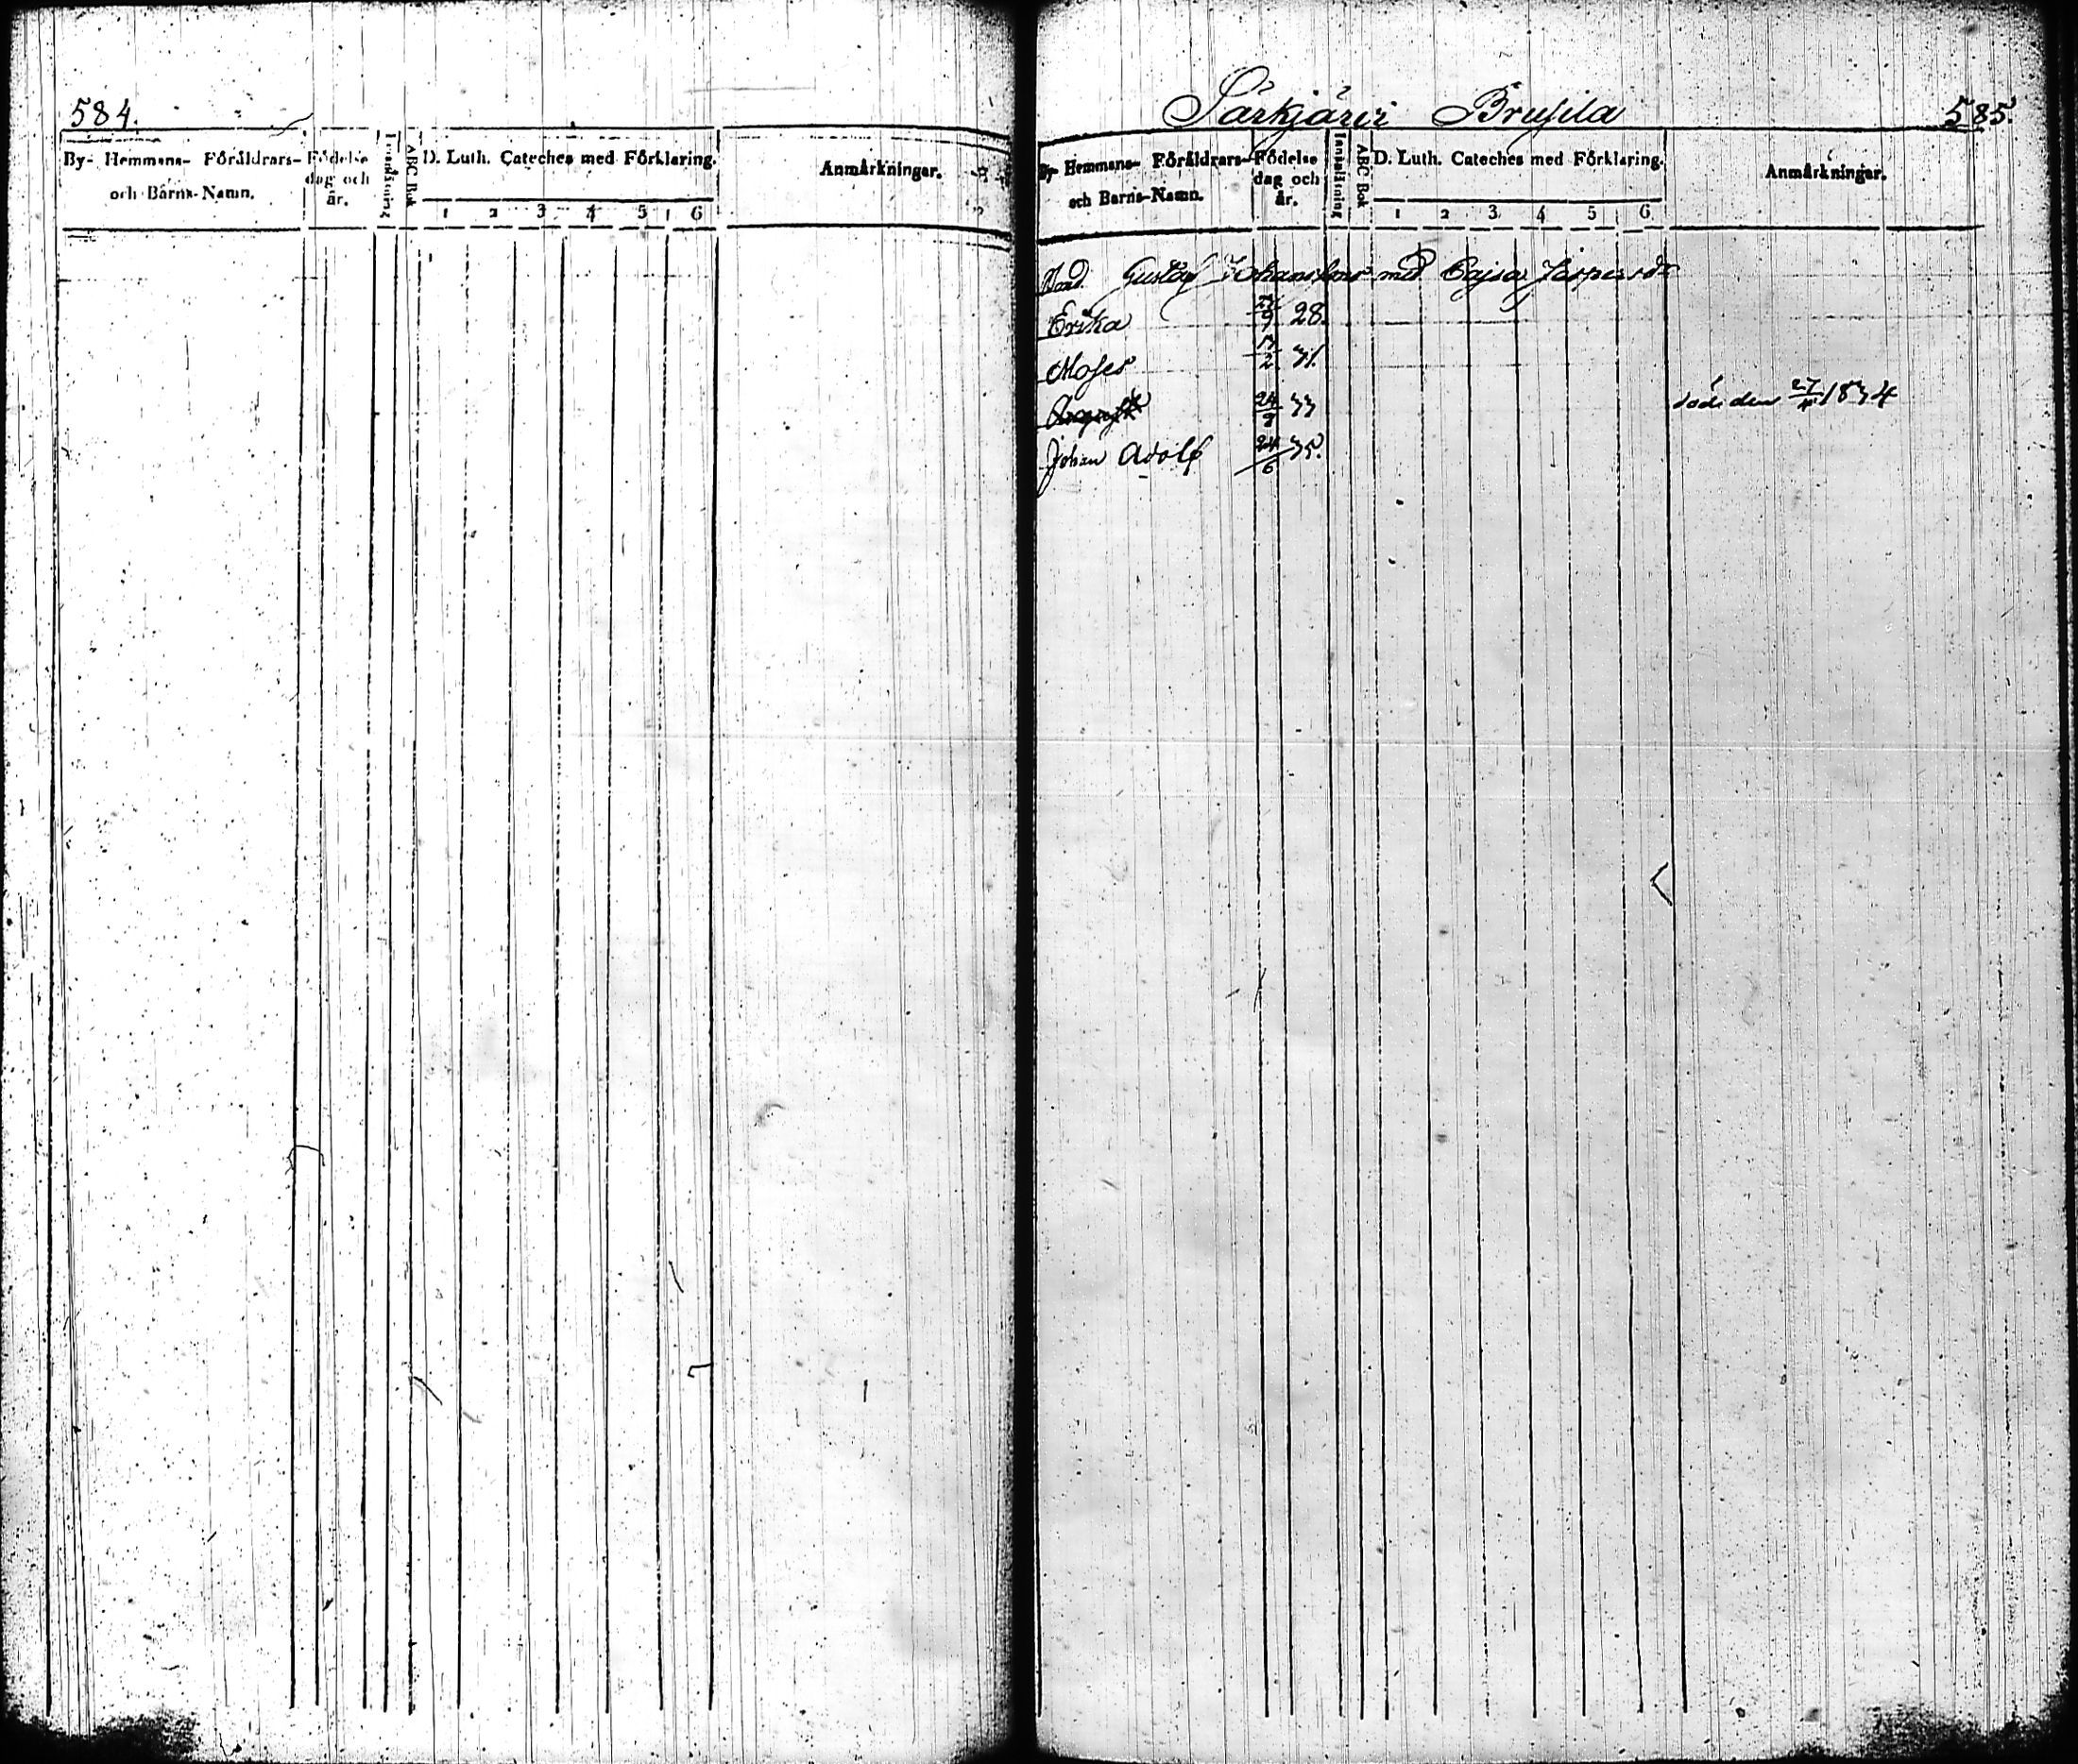 584.
By- Hemmans- Föräldrars-
och Barns-Namn.
Födelse
dag och
år.
Innanläsning
ABC Bok
D. Luth. Cateches med Förklaring.
1 2 3 4 5 6
Anmärkningar.
Särkjärvi Brusila 585.
By- Hemmans- Föräldrars-
och Barns-Namn.
Födelse
dag och
år.
Innanläsning
ABC Bok
D. Luth. Cateches med Förklaring.
1 2 3 4 5 6
Anmärkningar.
Gustaf Johansson med Cajsa Jaspersdr
Erika 9 28.
Moses 2 71.
24 död den 27/4 1874
Johan Adolf 24/6 75.